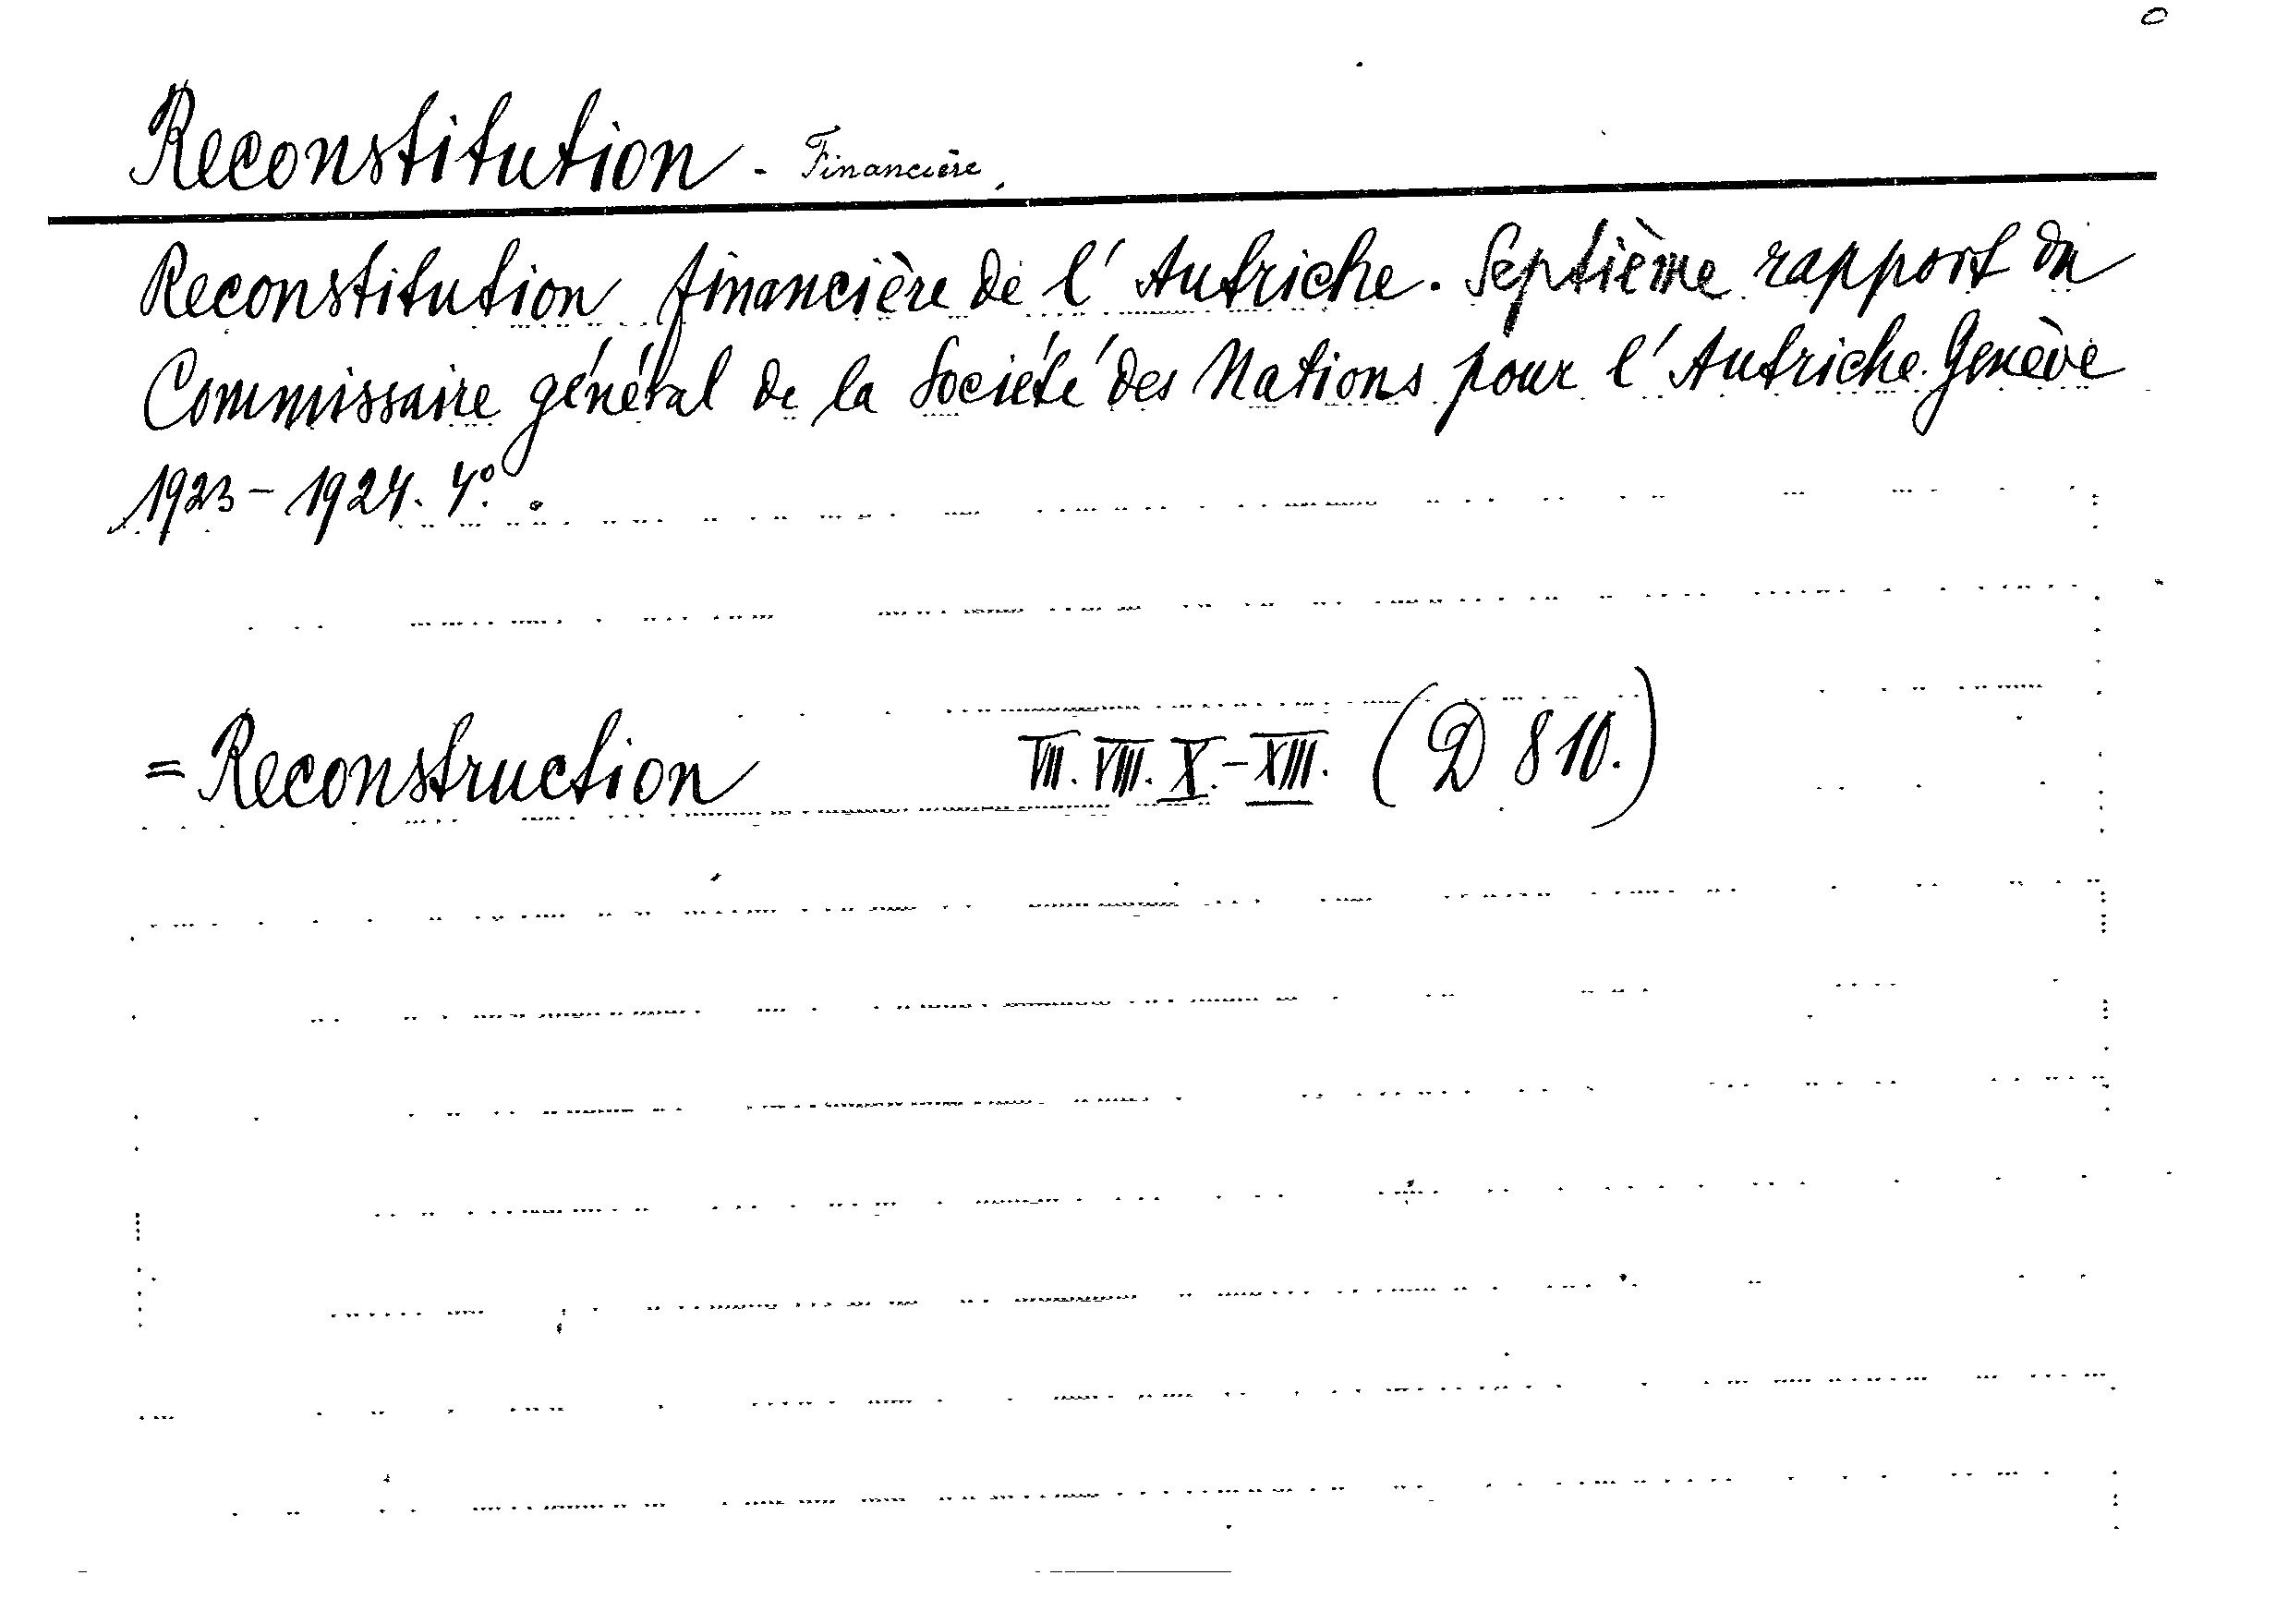 Reconstitution - Financière.
Reconstitution financière de l'Autriche. Septième rapport du
Commissaire général de la Société des Nations pour l'Autriche. Genève
1923-1924. 4°.
= Reconstruction VII. VIII. X.-XIII. (D 810.)